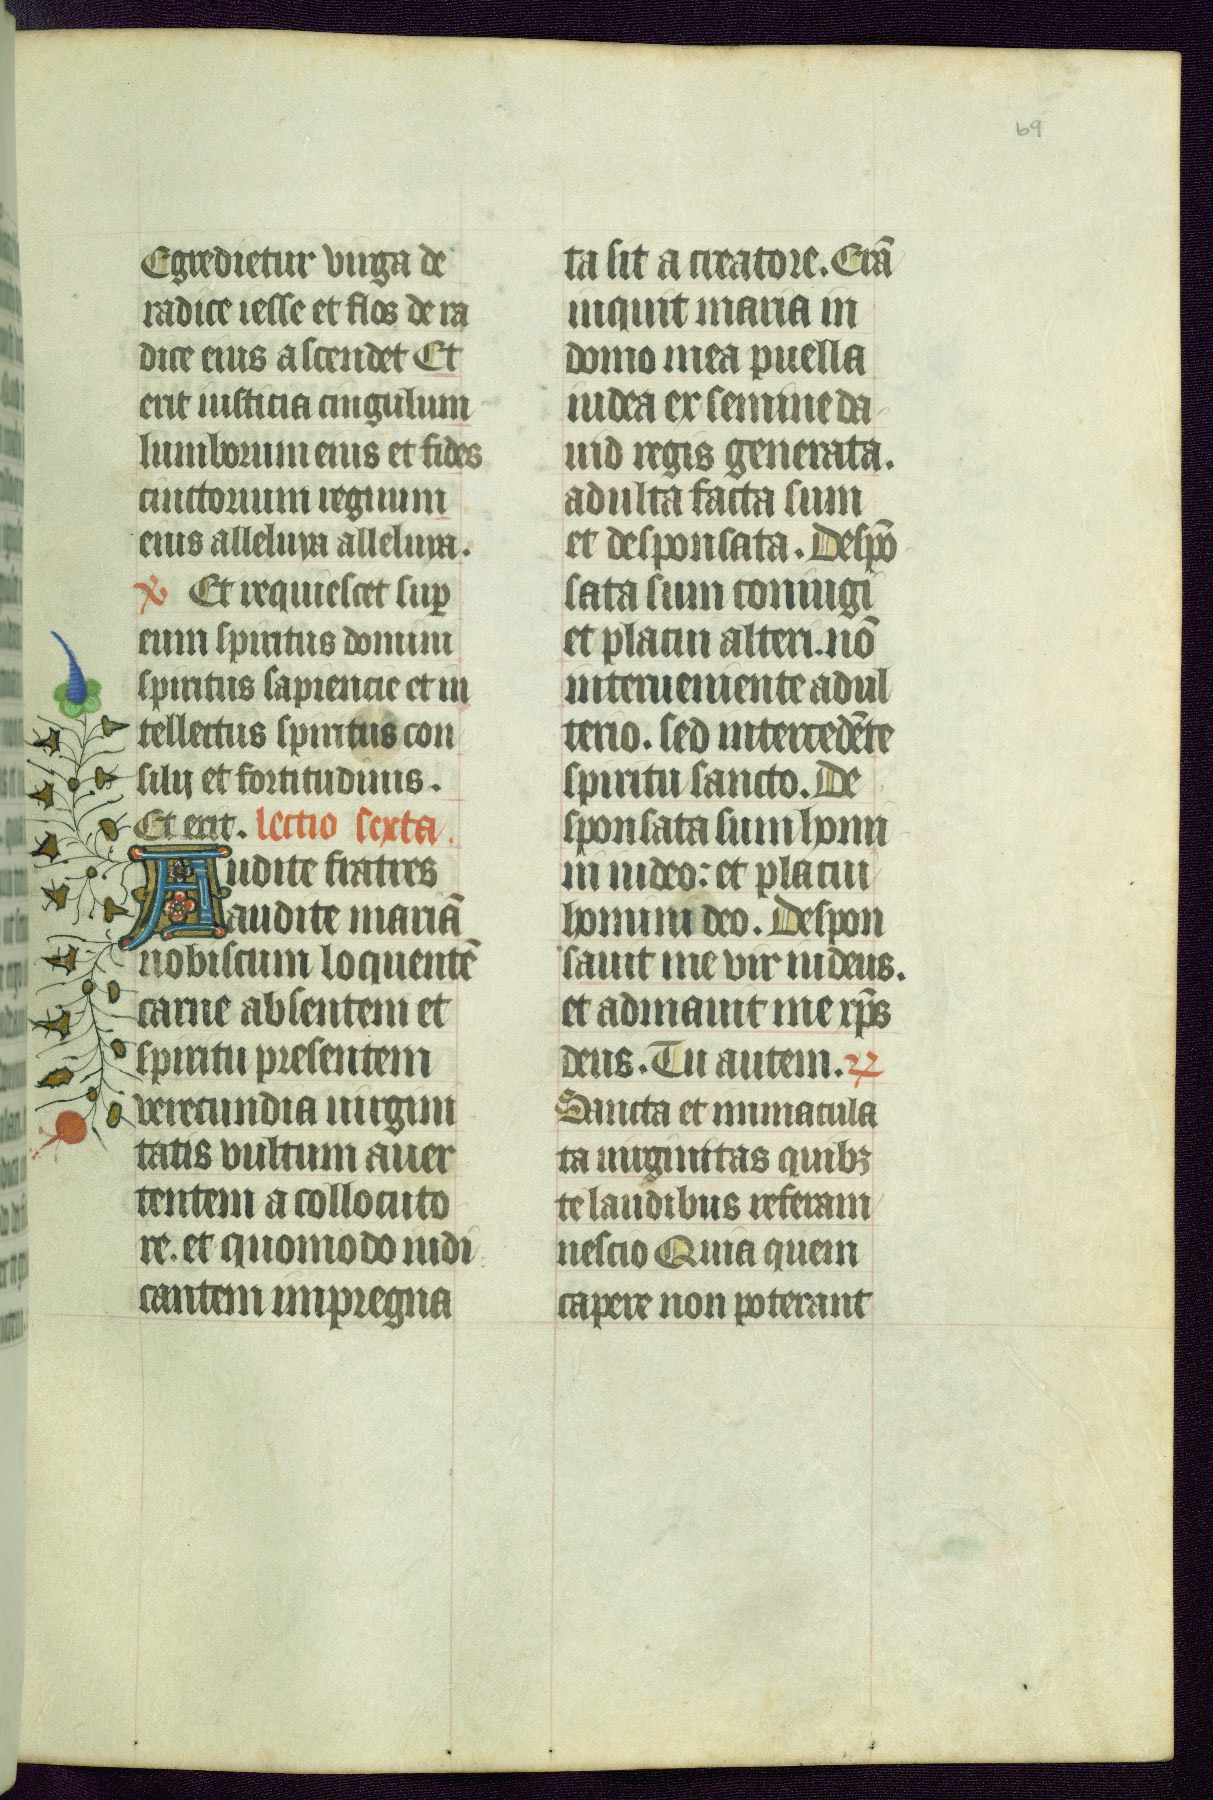 69
Egredietur virga de
radice iesse et flos de ra
dice eius ascendet Et
erit iusticia cingulum
lumborum eius et fides
cinctorium regnum
eius alleluya alleluya.
Et requiescet sup̲
eum spiritus domini
spiritus sapiencie et in
tellectus spiritus con
silij et fortitudinis.
Et erit. lectio sexta.
Audite fratres
audite mariā
nobiscum loquentē
carne absentem et
spiritu presentem
verecundia uirgini
tatis vultum auer
tentem a collocuto
re. et quomodo iudi
cantem impregna
ta sit a creatore. Erā
inquit maria in
domo mea puella
iudea ex semine da
uid regis generata.
adulta facta sum
et desponsata. Despō
sata sum coniugi
et placui alteri. nō
interueniente adul
terio. sed intercedēte
spiritu sancto. De
sponsata sum homi
ni iudeo: et placui
homini deo. Despon
sauit me vir iudeus.
et adinauit me xp̄s
deus. Tu autem. R
Sancta et inmacula
ta uirginitas quibꝫ
te laudibus referam
nescio Quia quem
capere non poterant